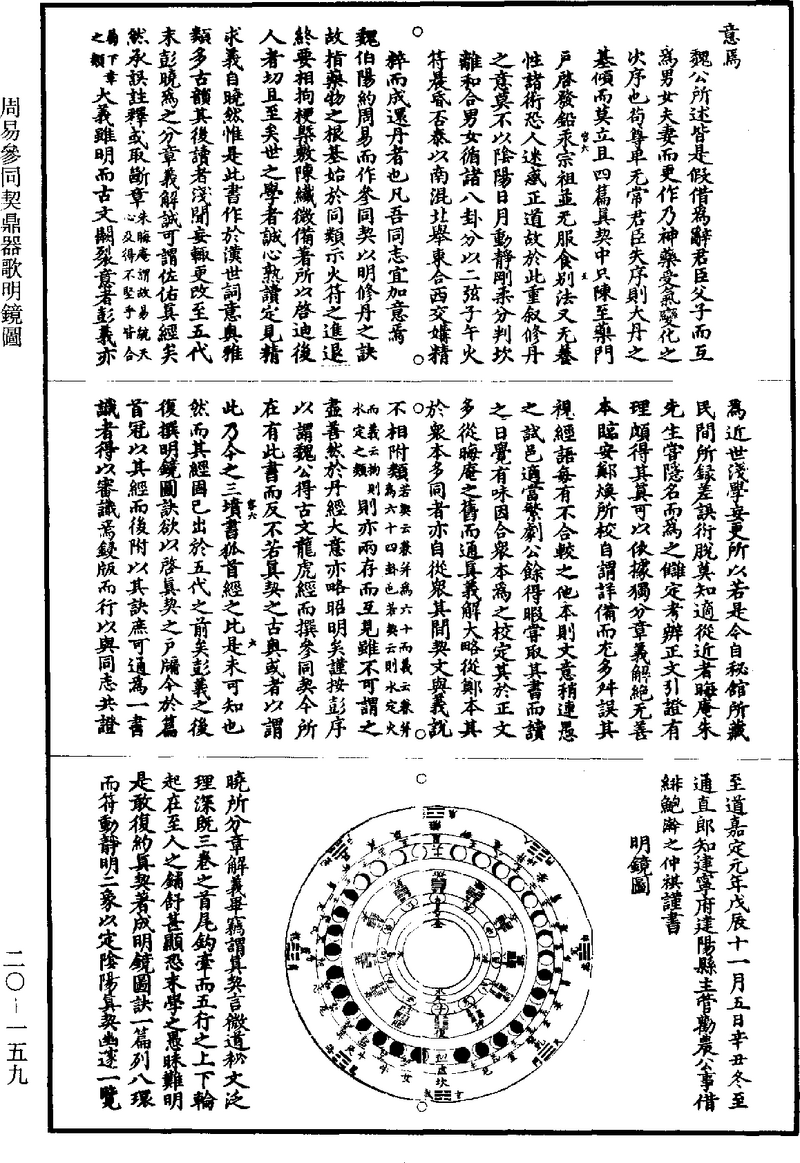 周易參同契鼎器歌明鏡圖
意焉
魏公所述皆是假借爲辭君臣父子而互
爲男女夫妻而更作乃神藥受氣變化之
次序也苟尊卑无常君臣失序則大丹之
基傾而莫立且四篇真契中只陳至藥門
戶啓發鉛汞宗祖並无服食别法又无養
性諸術恐人迷惑正道故於此重叙修丹
之意莫不以陰陽日月動靜剛柔分判坎
離和合男女循諸八卦分以二弦子午火
符晨昏否泰以南混北舉東合西交媾精
粹而成還丹者也凡吾同志宜加意焉
魏伯陽約周易而作參同契以明修丹之訣
故惜藥物之根基始於同類示火符之進退
終要相拘梗槩敷陳纖微備著所以啓迪後
人者切且至矣世之學者誠心熟讀定見精
求義自曉然惟是此書作於漢世詞意奥雅
類多古韻其後讀者淺聞妄輒更改至五代
末彭曉爲之分章義解誠可謂佐佑真經矣
然承誤註釋或取斷章朱晦庵謂故易統天心及得不堅乎皆合
屬下章之類大義雖明而古文闕裂意者彭義亦
爲近世淺學妄更所以若是今自秘館所藏
民間所録差誤衍脫莫知適從近者晦庵朱
先生嘗隱名而爲之讎定考辨正文引證有
理頗得其真可以依據獨分章義解絕无善
本臨安鄭焕所校自謂詳備而尤多舛誤其
視經語每有不合較之他本則文意稍連愚
之試邑適當繁劇公餘得暇嘗取其書而讀
之日覺有味因合衆本爲之校定其於正文
多從晦庵之舊而通真義解大略從鄭本其
於衆本多同者亦自從衆其間契文與義說
不相附類若契云兼并爲六十而義云兼并爲六十四卦也若契云則水定火
而義云拘則水定之類則亦兩存而至見雖不可謂之
盡善然於丹經大意亦略昭明矣謹按彭序
以謂魏公得古文龍虎經而撰參同契今所
在有此書而反不若真契之古奥或者以謂
此乃今之三墳書狐首經之比是未可知也
然而其經固已出於五代之前矣彭義之後
復撰明鏡圖訣欲以啓真契之戶牖今於篇
首冠以其經而後附以其訣庶可通爲一書
識者得以審識焉鋟版而行以與同志共證
至道嘉定元年戊辰十一月五日辛丑冬至
通直郎知建寧府建陽縣主管勸農公事借
緋鮑澣之仲祺謹書
明鏡圖
曉所分章解義畢竊謂真契言微道秘文泛
理深既三卷之首尾鈎牽而五行之上下輪
起在至人之鋪舒甚顯恐末學之愚昧難明
是敢復約真契著成明鏡圖訣一篇列八環
而符動靜明二象以定陰陽真契幽邃一覽
二〇—一五九